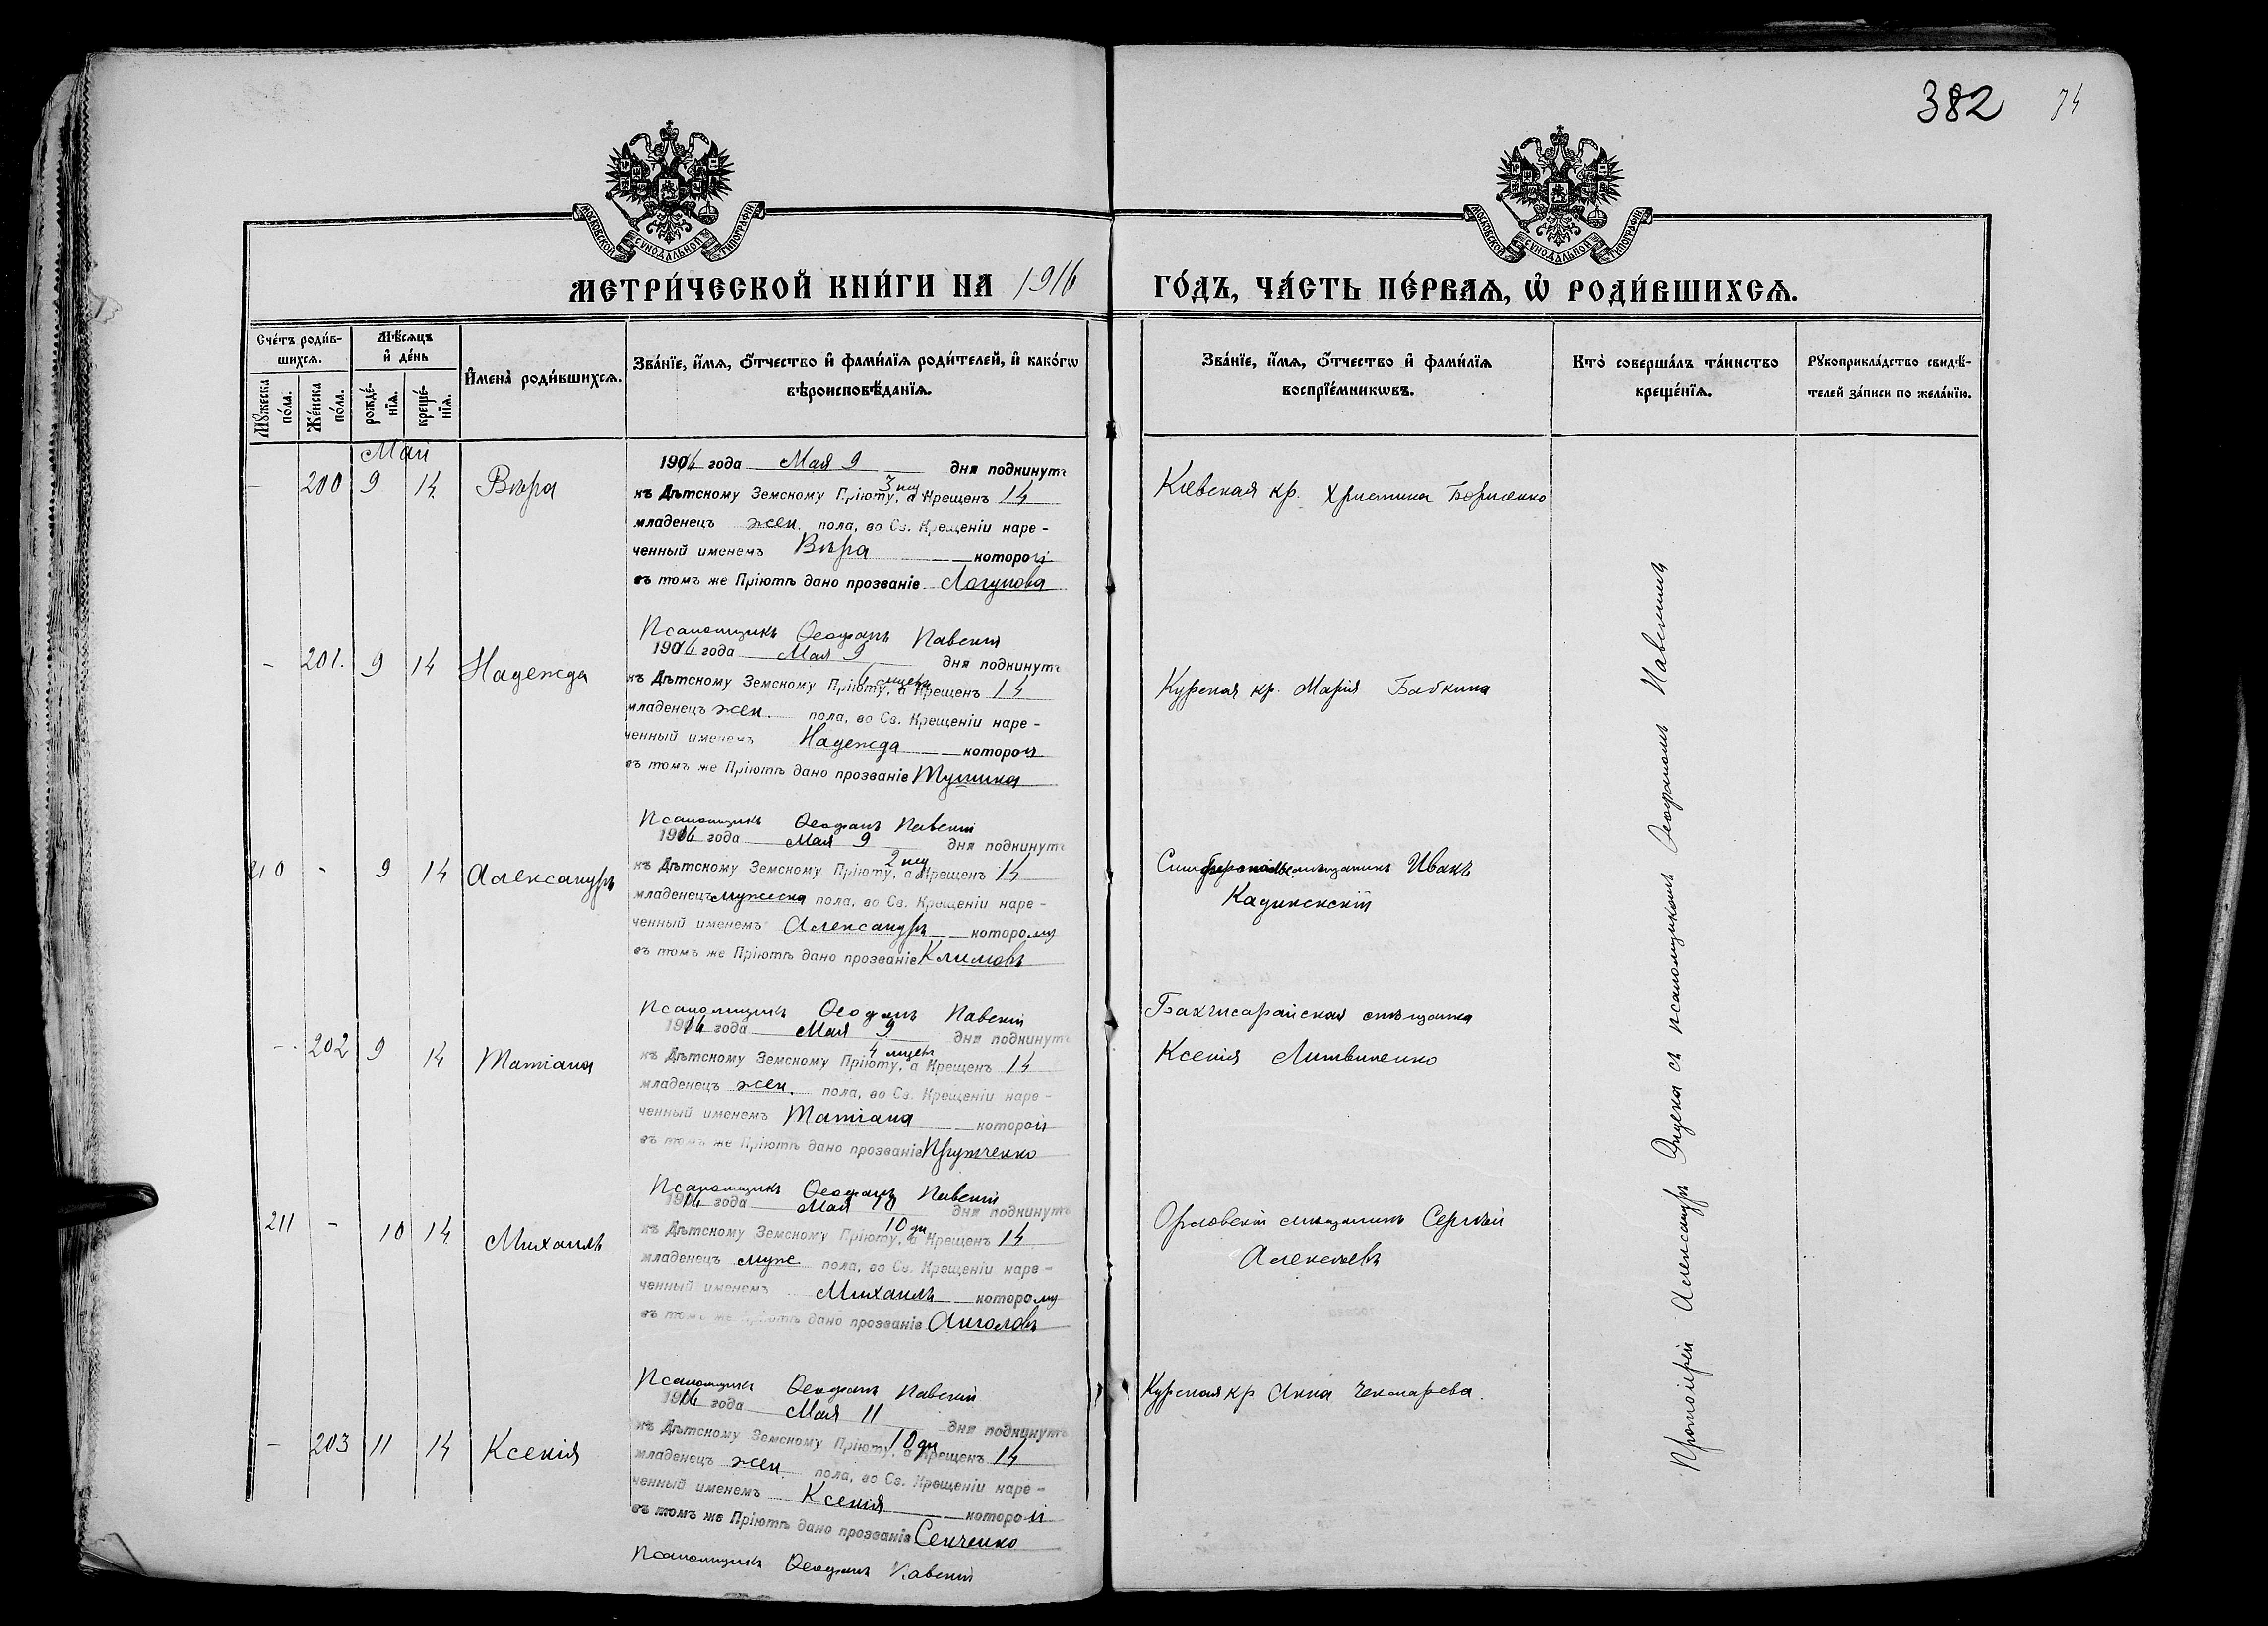 382 74
МОСКОВСКОЙ СУНОДАЛЬНОЙ ТИПОГРАФІИ
МОСКОВСКОЙ СУНОДАЛЬНОЙ ТИПОГРАФІИ
МЕТРИ́ЧЕСКОЙ КНИ́ГИ НА 1916 ГО́ДЪ, ЧА́СТЬ ПЕ́РВАѦ, Ѡ҆ РОДИ́ВШИХСѦ.
Сче́тъ роди́в-
шихсѧ.
Мѣ́сѧцъ
и҆ де́нь
Мꙋ́жеска
по́ла.
Же́нска
по́ла.
рожде́-
нїѧ.
креще́-
нїѧ.
И҆мена̀ роди́вшихсѧ.
Зва́нїе, и҆́мѧ, ѻ҆́тчество и҆ фами́лїѧ роди́телей, и҆ како́гѡ
вѣроисповѣ́данїѧ.
Зва́нїе, и҆́мѧ, ѻ҆́тчество и҆ фами́лїѧ
воспрїе́мникѡвъ.
Кто̀ соверша́лъ та́инство
креще́нїѧ.
Рꙋкоприкла́дство свидѣ́-
телей за́писи по жела́нїю.
Май
— 200 9 14 Вѣра
1916 года Мая 9 дня подкинутъ
къ Дѣтскому Земскому Пріюту, а Крещенъ 14
младенецъ жен. пола, во Св. Крещеніи наре -
ченный именемъ Вѣра которой
въ томъ же Пріютѣ дано прозваніе Логунова
Псаломщикъ Ѳеофанъ Павскій
Кіевская кр. Христина Борисенко
— 201. 9 14 Надежда
1916 года Мая 9 дня подкинутъ
къ Дѣтскому Земскому Пріюту, а Крещенъ 14
младенецъ жен. пола, во Св. Крещеніи наре -
ченный именемъ Надежда которой
въ томъ же Пріютѣ дано прозваніе
Псаломщикъ Ѳеофанъ Павскій
Курская кр. Марія Бабкина
210 - 9 14 Александръ
1916 года Мая 9 дня подкинутъ
къ Дѣтскому Земскому Пріюту, а Крещенъ 14
младенецъ мужеска пола, во Св. Крещеніи наре -
ченный именемъ Александръ которому
въ томъ же Пріютѣ дано прозваніе Климовъ
Псаломщикъ Ѳеофанъ Павскій
Иванъ
— 202 9 14 Татіана
1916 года Мая 9 дня подкинутъ
къ Дѣтскому Земскому Пріюту, а Крещенъ 14
младенецъ жен. пола, во Св. Крещеніи наре -
ченный именемъ Татіана которой
въ томъ же Пріютѣ дано прозваніе Прутченко
Псаломщикъ Ѳеофанъ Павскій
Бахчисарайская мѣщанка
Ксенія Литвиненко
211 - 10 14 Михаилъ
1916 года Мая 10 дня подкинутъ
къ Дѣтскому Земскому Пріюту, а Крещенъ 14
младенецъ муж пола, во Св. Крещеніи наре -
ченный именемъ Михаилъ которому
въ томъ же Пріютѣ дано прозваніе
Псаломщикъ Ѳеофанъ Павскій
Орловскій мѣщанинъ Сергѣй
Алексѣевъ
— 203 11 14 Ксенія
1916 года Мая 11 дня подкинутъ
къ Дѣтскому Земскому Пріюту, а Крещенъ 14
младенецъ жен. пола, во Св. Крещеніи наре -
ченный именемъ Ксенія которой
въ томъ же Пріютѣ дано прозваніе Сенченко
Псаломщикъ Ѳеофанъ Павскій
Курская кр Анна Чекмарева.
Протоіерей Александръ Эндека съ псаломщикомъ Ѳеофаномъ Павскимъ